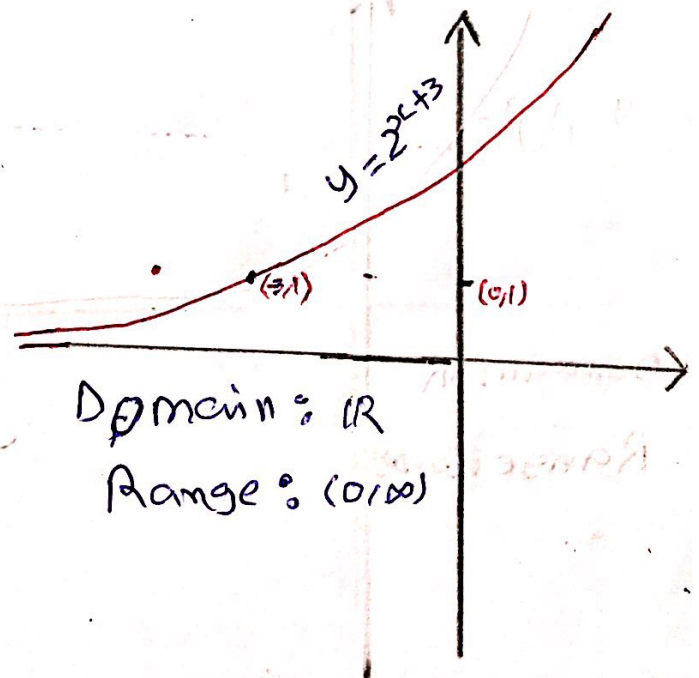 y = 2^x+3
(-3,1)
(0,1)
Domain: ℝ
Range: (0,∞)